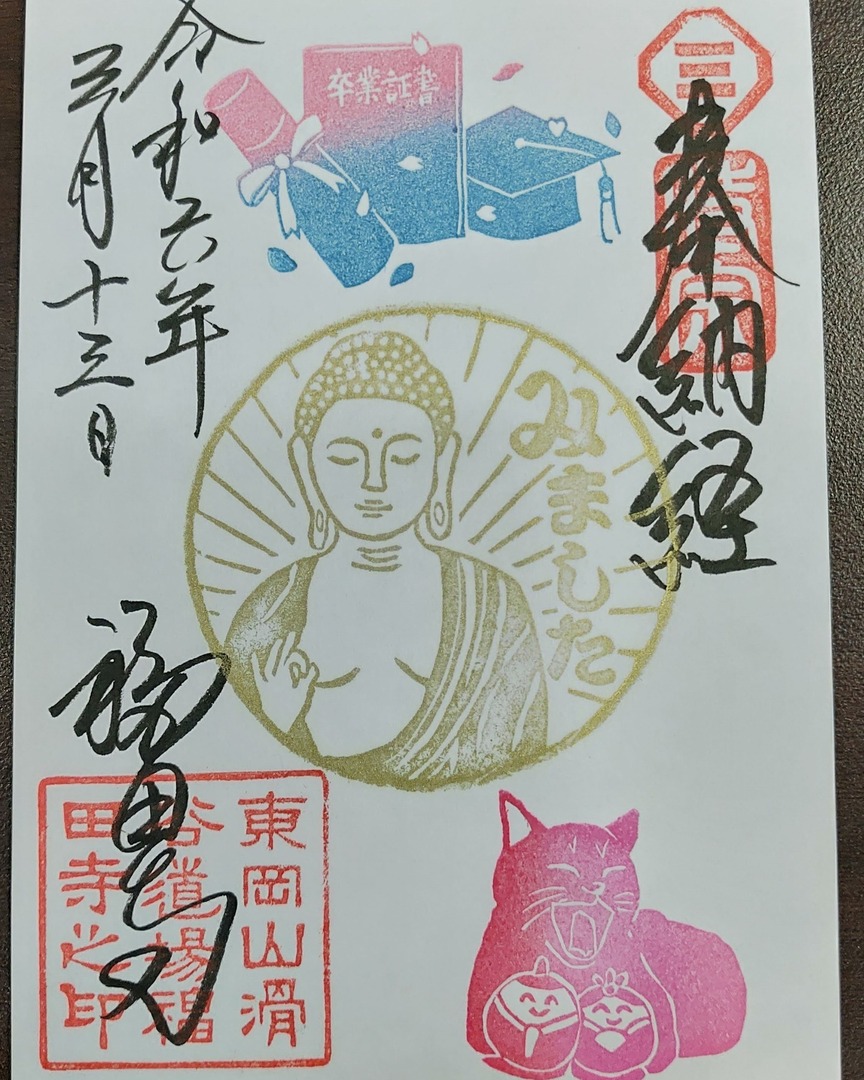 奉納経
卒業証書
みました
令和六年
三月十三日
福田寺
東岡山滑
谷道場福
田寺之印